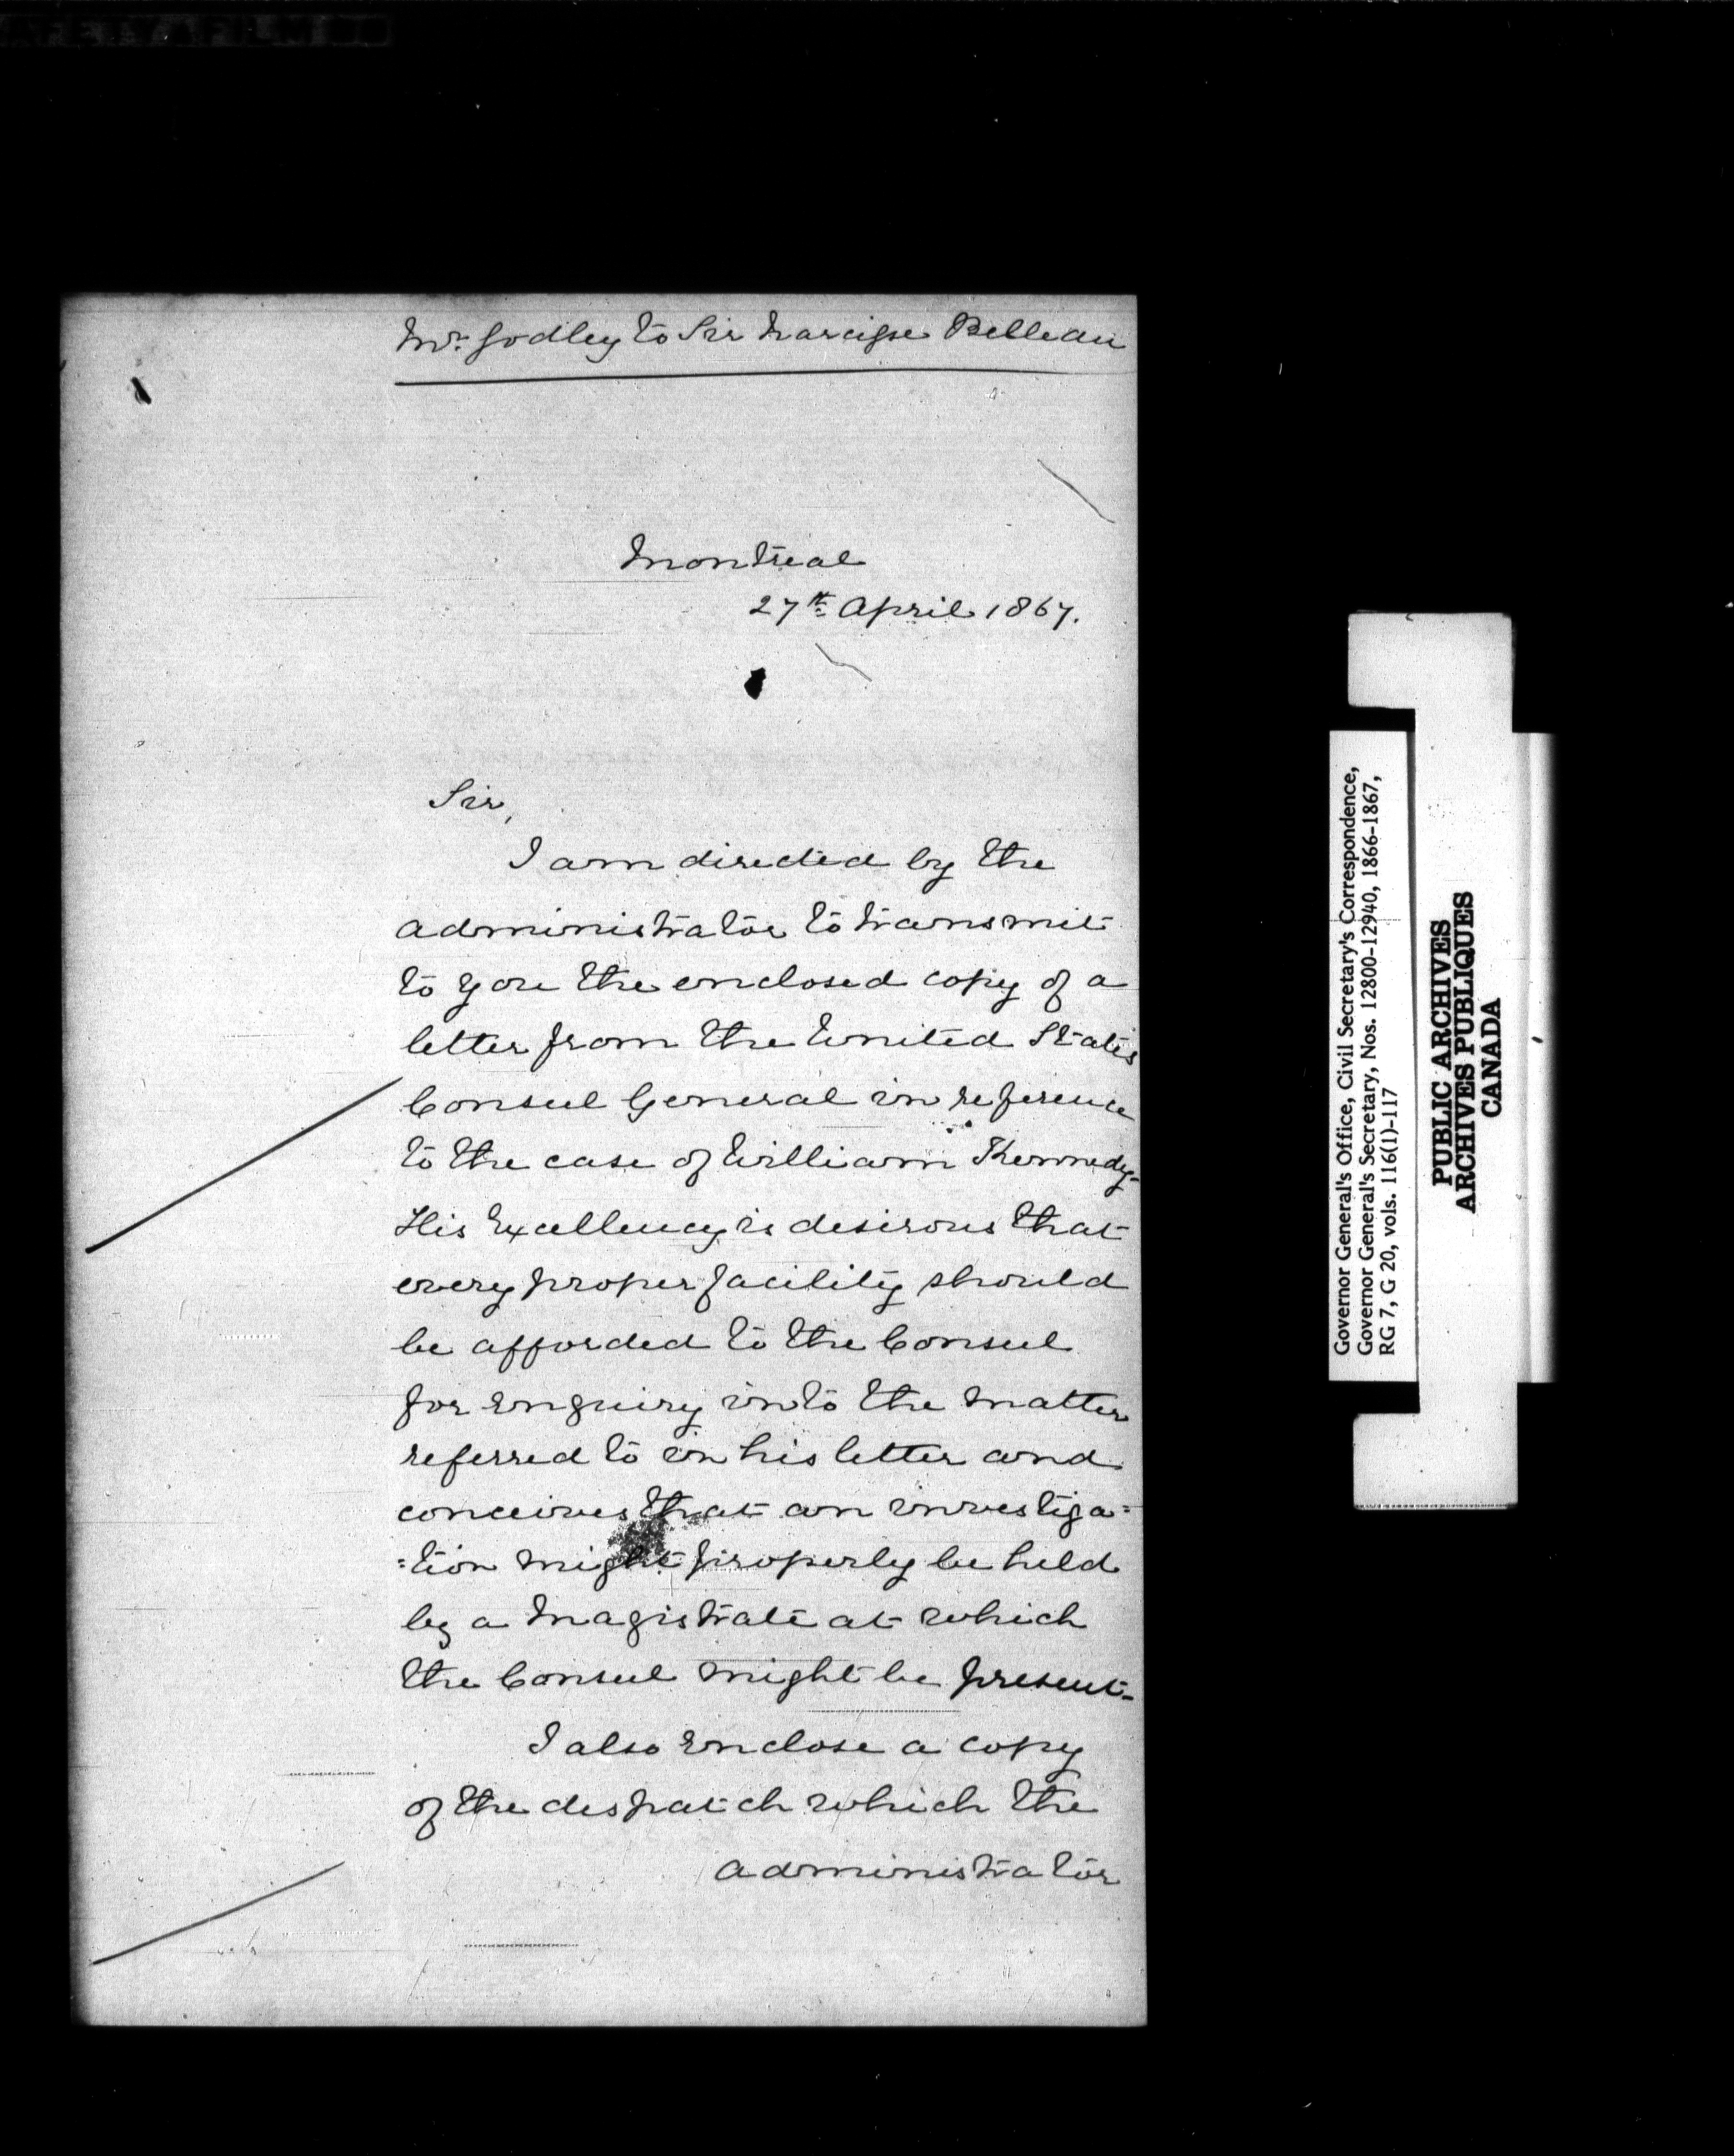 Mr. Godley to Sir Narcisse Belleau
Montreal
27th April 1867.
Sir,
I am directed by the
Administrator to transmit
to you the enclosed copy of a
letter from the United States
Consul General in reference
to the case of William Kennedy.
His Excellency is desirous that
every proper facility should
be afforded to the Consul
for enquiry into the matter
referred to in his letter and
conceives that an investiga=
=tion might properly be held
by a Magistrate at which
the Consul might be present.
I also enclose a copy
of the despatch which the
Administrator
Governor General's Office, Civil Secretary's Correspondence,
Governor General's Secretary, Nos. 12800-12940, 1866-1867,
RG 7, G 20, vols. 116(1)-117
PUBLIC ARCHIVES
ARCHIVES PUBLIQUES
CANADA